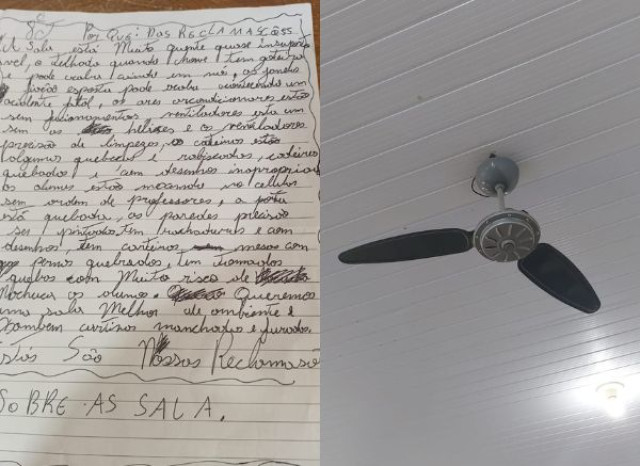 Por Que: Das RECLAMAÇÕES
A Sala está Muito quente quase insuport
ável, o telhado quando chove tem goteira
e pode acabar caindo um
fiação exposta pode acaba acontecendo um
acidente fatal, os ares arcondicionares estão
sem funcionamentos, ventiladores esta um
sem as helices e os ventiladores
precisão de limpezas, as cadeiras estão
algumas quebrada e rabiscadas, cadeiras
quebradas e com desenhos inapropriados
os alunos estão mexendo no celular
sem ordem de professores, a porta
está quebrada, as paredes precisa
ser pintadas, tem rachaduras e com
desenhos, tem carteiras mesas com
pernas quebrados, tem tomadas
quebras com Muito risco de
Machucar os alunos. Queremos
uma sala Melhor de ambiente e
também cortinas manchadas e furadas.
Estás São Nossas Reclamasõ
SOBRE AS SALA.